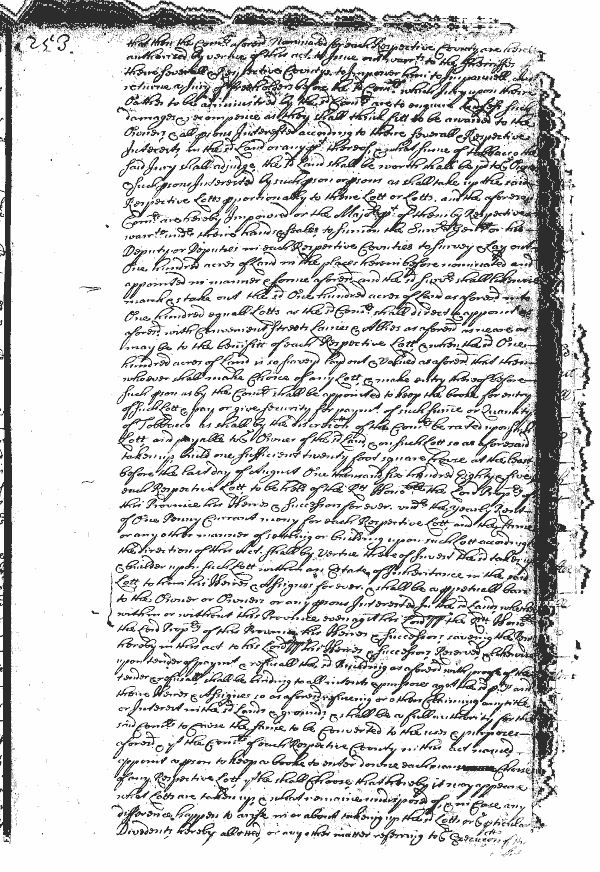 253.
that then the Com.rs aforesd Nominated for each Respective County are hereby
authorized by vertue of this act, to Issue out warr.ts to the Sherriffs
theire severall & Respective Countys, to Impower him to Impannell and
returne a Jury of freeholders before the sd Com.rs which Jury upon theire
Oathes to be administred by the sd Com.rs are to enquire & assess such
damages & recompence as they shall think fitt to be awarded to the
Owners & all psons Interested according to theire severall & Respective
Interests in the sd Land or any pt thereof & what sume of tobbacco the
said Jury shall adjudge the sd Land shall be worth shall be pd to the Owner
& such pson Interested by such pson or psons as shall take up the said
Respective Lotts pportionally to theire Lott or Lotts, and the aforesd
Com.rs are hereby Impowred or the Major pt of them by Respective
warr.ts under theire hands & seales to Sumon the Surv.r Gen.ll or his
Deputy or Deputies in each Respective Counties to Survey & Lay out
One hundred acres of Land in the places herein before nominated and
appointed in manner & forme aforesd and the sd Surv.r shall likewise
marke & stake out the sd One hundred acres of Land as aforesd into
One hundred equall Lotts as the sd Com.rs shall direct & appoint
aforesd with Convenient Streets Lanes & Allies as aforesd as neare as
may be to the benifitt of each Respective Lott & when the sd One
hundred acres of Land is so survey'd layd out & valued as aforesd that then
whoever shall make Choice of any Lott & make entry thereof before
such pson as by the Com.rs shall be appointed to keep the booke for entry
of such Lott & pay or give security for paym.t of such sume or Quantity
of Tobacco as shall by the discretion of the Com.rs be rated upon such
Lott and payable to the Owner of the sd Land & on such Lott so as aforesaid
taken up build one sufficient twenty foot square house at the least
before the last day of August One thousand six hundred Eighty & five
each Respective Lott to be held of the Rt Hono.ble the Lord Prop.ry of
this Province his Heires & Successors for ever, und.r the yearly Rent
of One Penny Currant mony for each Respective Lott and the same
or any other manner of seating or building upon such Lott according
the direction of this Act, shall by vertue thereof Invest the sd taker up
& builder upon such Lott with an Estate of Inheritance in the said
Lott to him his Heires & Assignes forever & shall be a perpetuall barr
to the Owner or Owners or any psons Interested in the sd Land whether
within or without this Province even ag.t his Lordpp the Rt Hono.ble
the Lord Prop.ry of this Province his Heires & Successors, saving the Rent
hereby in this act to his Lordpp his Heires & Successors Reserved & likewise
upon tender of paym.t & refusall the sd Building as aforesd with proofe of the
tender & refusall shall be binding to all intents & purposes ag.t the sd psons and
theire Heires & Assignes so as aforesd refuseing or others Claiming any title
or Interest in the sd Lands & grounds, & shall be a full authority for the
said Com.rs to Cause the same to be Converted to the uses & purposes
aforesd, & yt the Com.rs of each Respective County in this act named
appoint a pson to keep a booke to enter downe each mans Choise
of any Respective Lott yt he shall Choose, that thereby it may appeare
what Lotts are taken up & what remaine undisposed of & in Case any
difference happen to arise in or about takeing up the sd Lotts or & pticular
Dividents hereby allotted, or any other matter referring to ye Execution of